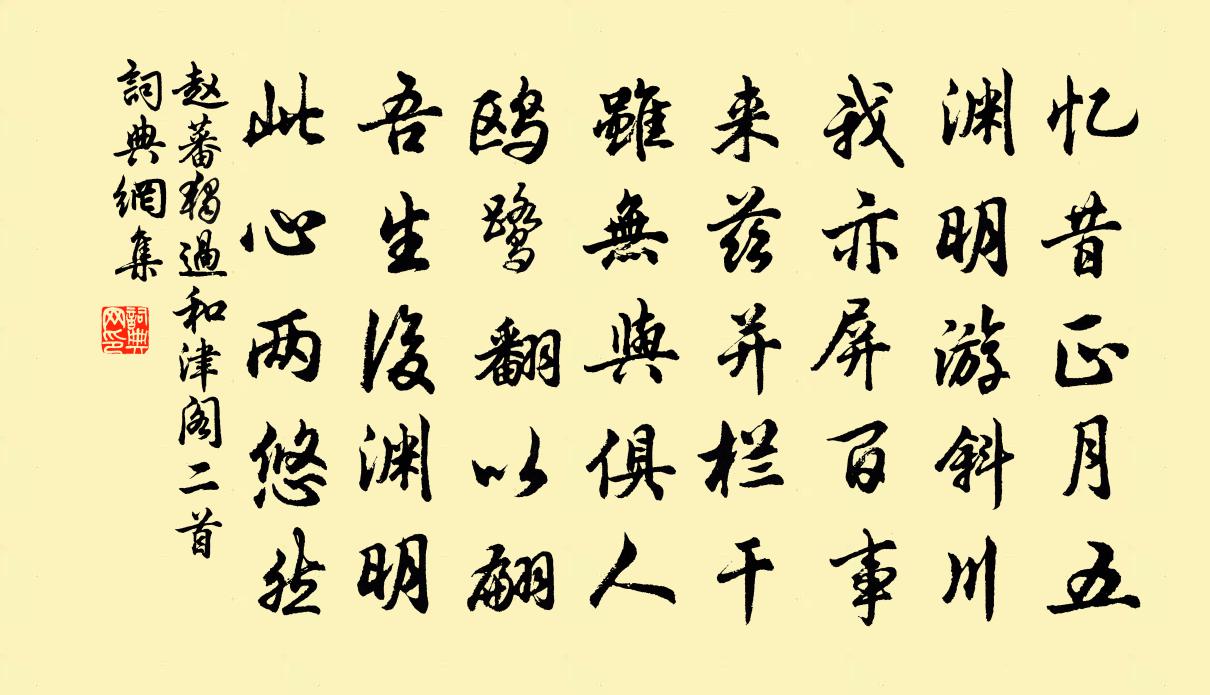 忆昔正月五
渊明游斜川
我亦屏百事
来兹并栏干
雖無與俱人
鸥鹭翻以翩
吾生後渊明
此心两悠然
赵蕃獨過和津阁二首
詞典網集
詞典网印